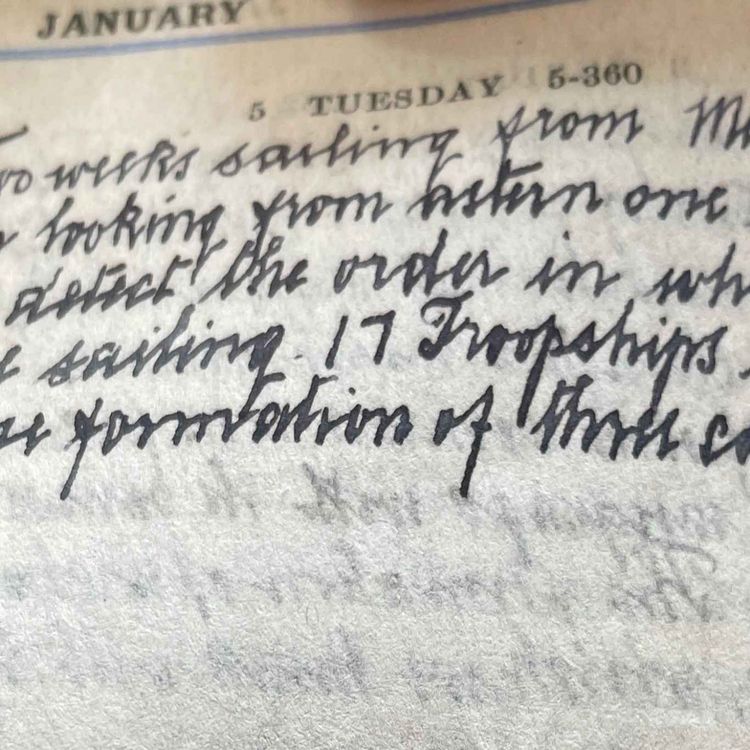 JANUARY
5 TUESDAY 5-360
weeks sailing from
looking from astern one
detect the order in
sailing. 17 Troopships
formation of three